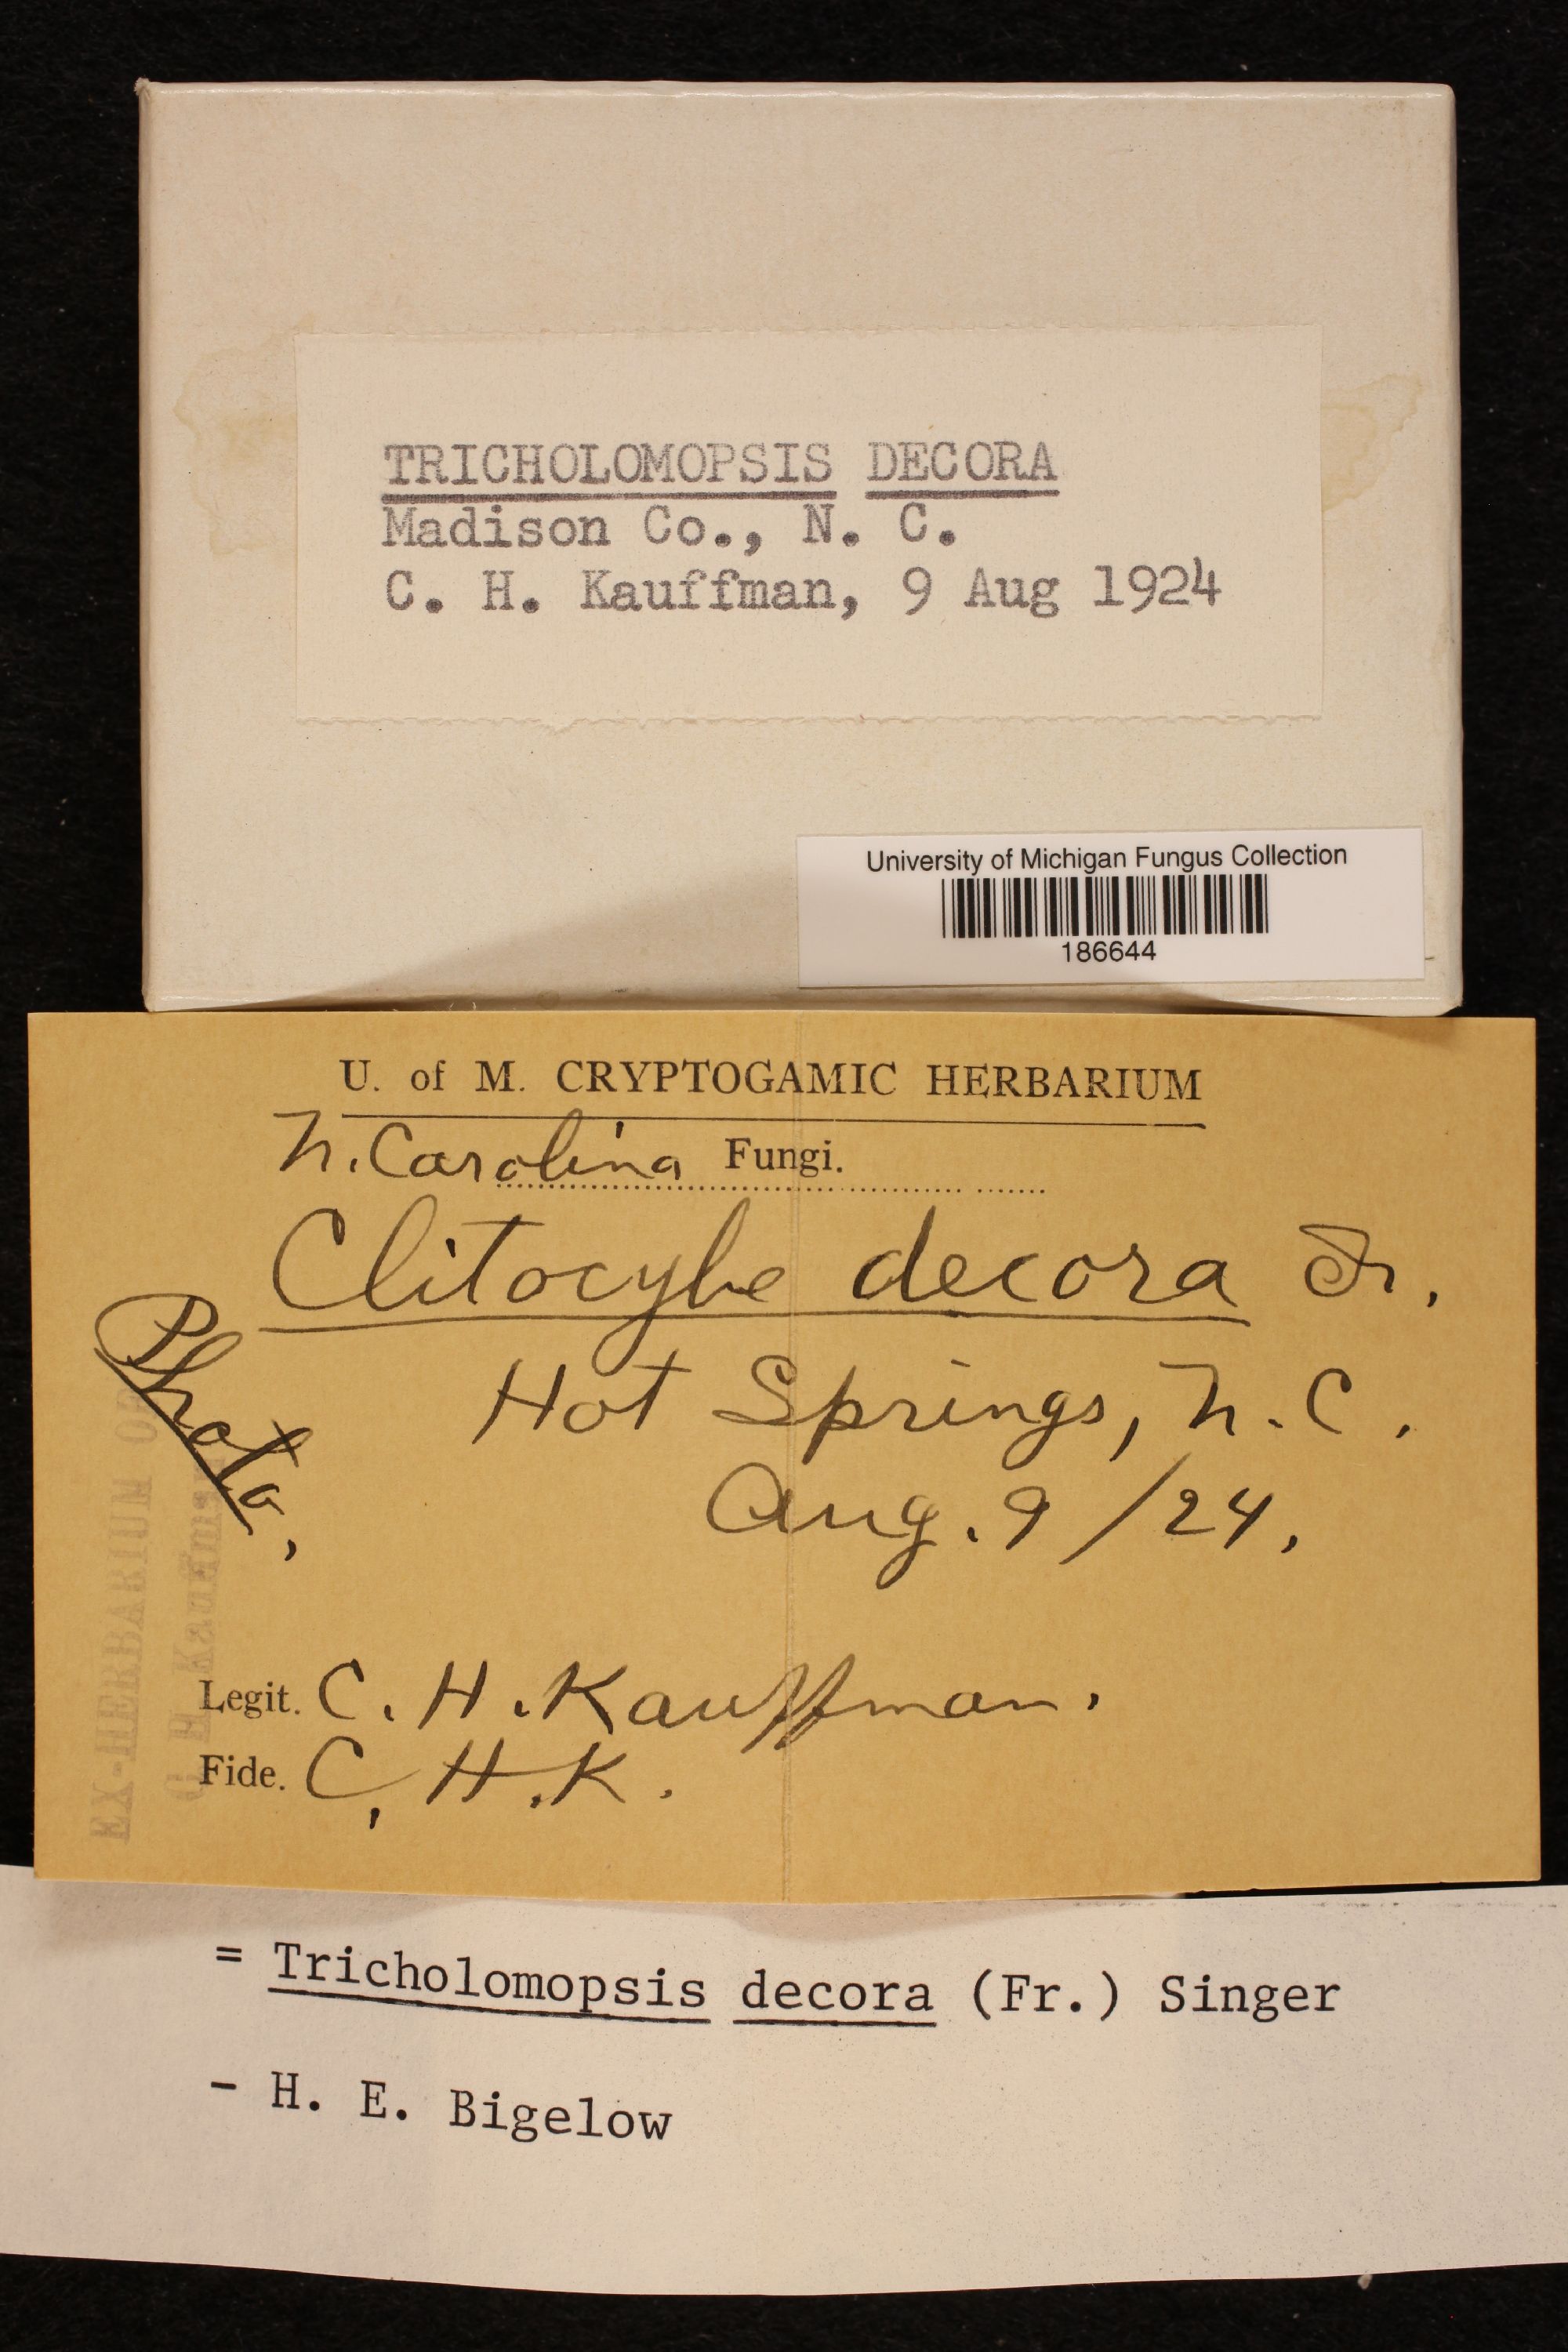 TRICHOLOMOPSIS DECORA
Madison Co., N. C.
C. H. Kauffman, 9 Aug 1924
University of Michigan Fungus Collection
186644
U. of M. CRYPTOGAMIC HERBARIUM
N. Carolina Fungi.
Clitocybe decora Fr.
Photo.
Hot Springs, N. C.
Aug. 9 / 24.
Legit. C. H. Kauffman.
Fide. C. H. K.
EX-HERBARIUM OF
C H Kauffman
= Tricholomopsis decora (Fr.) Singer
- H. E. Bigelow